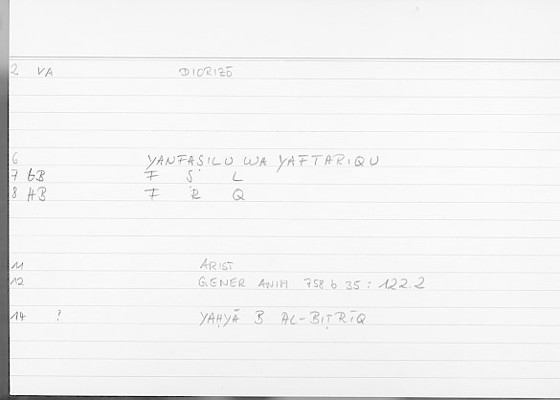 2 VA DIORIZŌ
6 YANFAṢILU WA YAFTARIQU
7 GB F Ṣ L
8 HB F R Q
11 ARIST
12 GENER ANIM 758 b 35 : 122.2
14 ? YAḤYĀ B AL-BIṬRĪQ